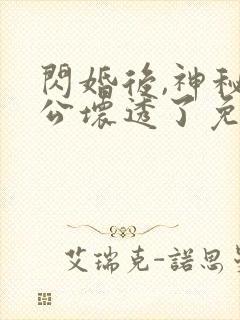 閃婚後,神秘
公壞透了免
艾瑞克-諾思曼